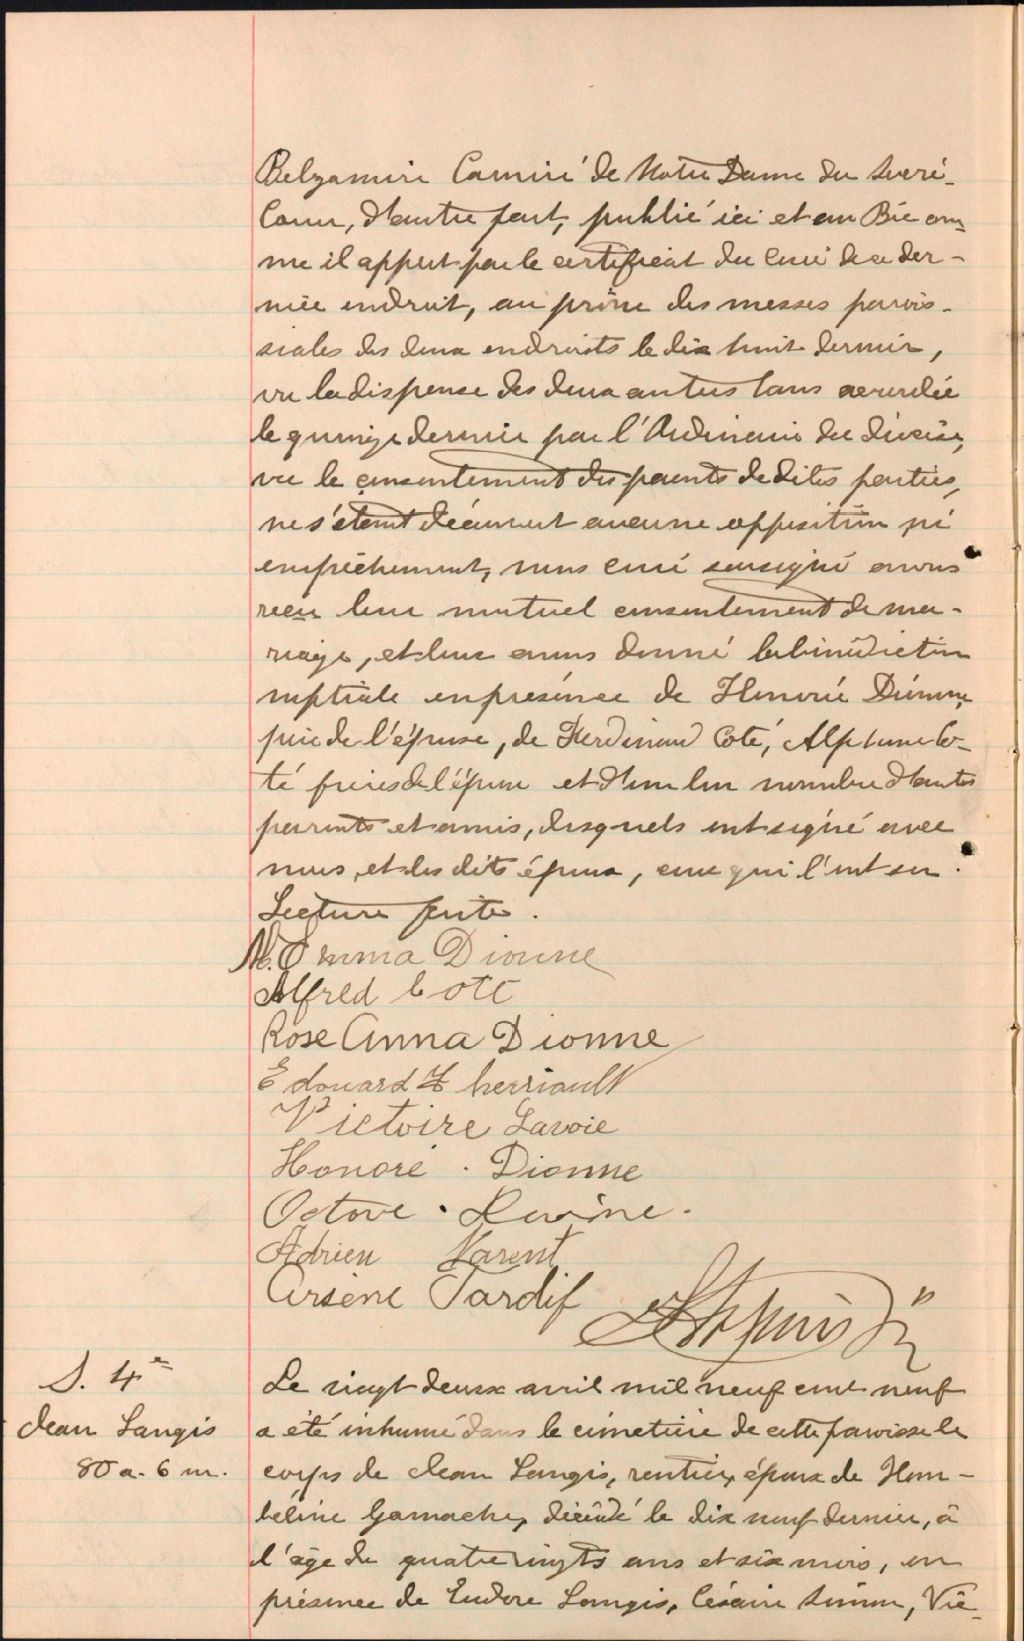 Belzamire Camiré de Notre Dame du Sacré-
Coeur, d'autre part, publié ici et au Bic com-
me il appert par le certificat du curé de ce der-
nier endroit, au prône des messes parois-
siales des deux endroits le dix huit dernier,
vu la dispense des deux autres bans accordée
le quinze dernier par l'Ordinaire du diocèse,
vu le consentement des parents de dites parties,
ne s'étant découvert aucune opposition ni
empêchement, nous curé soussigné avons
reçu leur mutuel consentement de ma-
riage, et leur avons donné la bénédiction
nuptiale en présence de Honoré Dionne
père de l'épouse, de Ferdinand Coté, Alphonse Co-
té frères de l'époux et d'un bon nombre d'autres
parents et amis, desquels ont signé avec
nous, et les dits époux, ceux qui l'ont su.
Lecture faite.
M. Emma Dionne
Alfred Cote
Rose Anna Dionne
Edouard Therriault
Victoire Lavoie
Honore . Dionne
Octave .
Adrien Parent
Arsene Tardif
S. 4e
Jean Langis
80 a. 6 m.
Le vingt deux avril mil neuf cent neuf
a été inhumé dans le cimetière de cette paroisse le
corps de Jean Langis, rentier, époux de Hom-
béline Gamache, décédé le dix neuf dernier, à
l'âge de quatre vingts ans et six mois, en
présence de Eudore Langis, Césaire Simon, Vic-